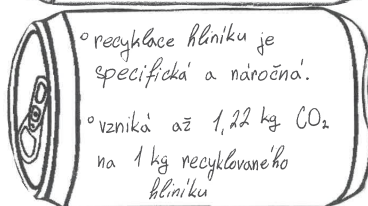 ° recyklace hliníku je
specifická a náročná.
° vzniká až 1,22 kg CO₂
na 1 kg recyklovaného
hliníku